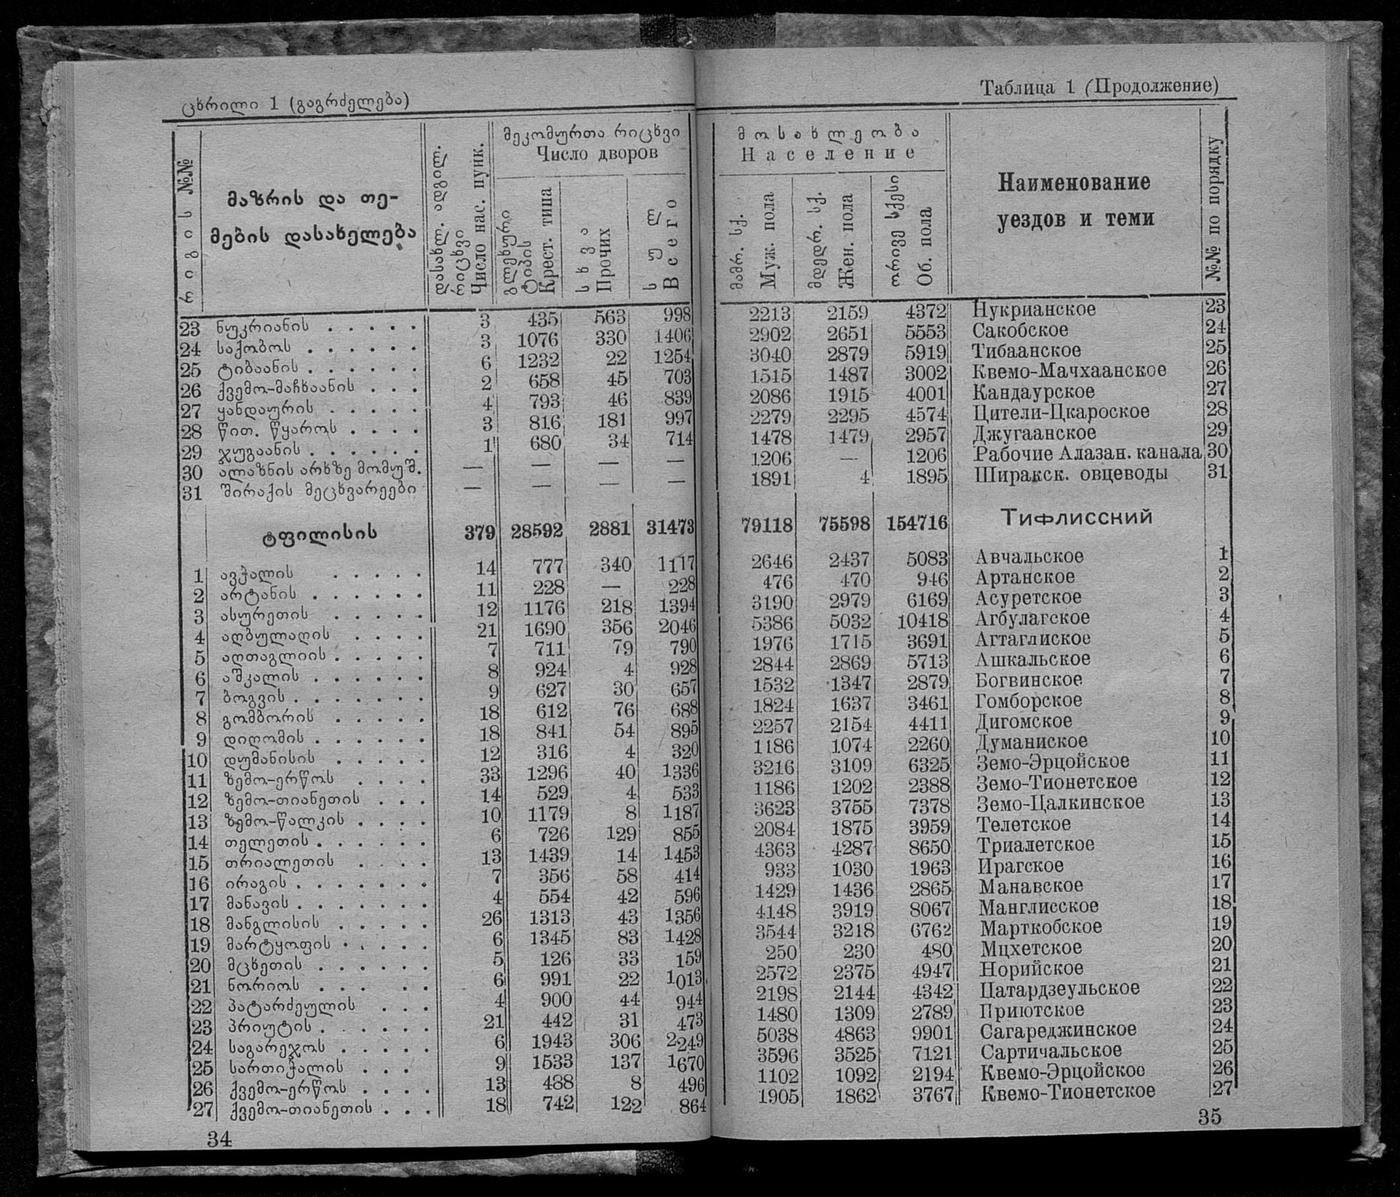 ცხრილი 1 (გაგრძელება)
რიგის №№
მაზრის და თე-
მების დასახელება
დასახლ. ადგილ.
რიცხვი
Число нас. пунк.
მეკომურთა რიცხვი
Число дворов
გლეხური
ტიპის
Крест. типа
სხვა
Прочих
სულ
Всего
23 ნუკრიანის 3 435 563 998
24 საქობოს 3 1076 330 1406
25 ტიბაანის 6 1232 22 1254
26 ქვემო-მაჩხაანის 2 658 45 703
27 ყანდაურის 4 793 46 839
28 წით. წყაროს 3 816 181 997
29 ჯუგაანის 1 680 34 714
30 ალაზნის არხზე მომუშ. — — — —
31 შირაქის მეცხვარეები — — — —
ტფილისის 379 28592 2881 31473
1 ავჭალის 14 777 340 1117
2 არტანის 11 228 — 228
3 ასურეთის 12 1176 218 1394
4 აღბულაღის 21 1690 356 2046
5 აღთაგლიის 7 711 79 790
6 აშკალის 8 924 4 928
7 ბოგვის 9 627 30 657
8 გომბორის 18 612 76 688
9 დიღომის 18 841 54 895
10 დუმანისის 12 316 4 320
11 ზემო-ერწოს 33 1296 40 1336
12 ზემო-თიანეთის 14 529 4 533
13 ზემო-წალკის 10 1179 8 1187
14 თელეთის 6 726 129 855
15 თრიალეთის 13 1439 14 1453
16 ირაგის 7 356 58 414
17 მანავის 4 554 42 596
18 მანგლისის 26 1313 43 1356
19 მარტყოფის 6 1345 83 1428
20 მცხეთის 5 126 33 159
21 ნორიოს 6 991 22 1013
22 პატარძეულის 4 900 44 944
23 პრიუტის 21 442 31 473
24 საგარეჯოს 6 1943 306 2249
25 სართიჭალის 9 1533 137 1670
26 ქვემო-ერწოს 13 488 8 496
27 ქვემო-თიანეთის 18 742 122 864
34
Таблица 1 (Продолжение)
მოსახლეობა
Население
მამრ. სქ.
Муж. пола
მდედრ. სქ.
Жен. пола
ორივე სქესი
Об. пола
Наименование
уездов и теми
№№ по порядку
2213 2159 4372 Нукрианское 23
2902 2651 5553 Сакобское 24
3040 2879 5919 Тибаанское 25
1515 1487 3002 Квемо-Мачхаанское 26
2086 1915 4001 Кандаурское 27
2279 2295 4574 Цители-Цкароское 28
1478 1479 2957 Джугаанское 29
1206 — 1206 Рабочие Алазан. канала 30
1891 4 1895 Ширакск. овцеводы 31
79118 75598 154716 Тифлисский
2646 2437 5083 Авчальское 1
476 470 946 Артанское 2
3190 2979 6169 Асуретское 3
5386 5032 10418 Агбулагское 4
1976 1715 3691 Агтаглиское 5
2844 2869 5713 Ашкальское 6
1532 1347 2879 Богвинское 7
1824 1637 3461 Гомборское 8
2257 2154 4411 Дигомское 9
1186 1074 2260 Думаниское 10
3216 3109 6325 Земо-Эрцойское 11
1186 1202 2388 Земо-Тионетское 12
3623 3755 7378 Земо-Цалкинское 13
2084 1875 3959 Телетское 14
4363 4287 8650 Триалетское 15
933 1030 1963 Ирагское 16
1429 1436 2865 Манавское 17
4148 3919 8067 Манглисское 18
3544 3218 6762 Марткобское 19
250 230 480 Мцхетское 20
2572 2375 4947 Норийское 21
2198 2144 4342 Цатардзеульское 22
1480 1309 2789 Приютское 23
5038 4863 9901 Сагареджинское 24
3596 3525 7121 Сартичальское 25
1102 1092 2194 Квемо-Эрцойское 26
1905 1862 3767 Квемо-Тионетское 27
35